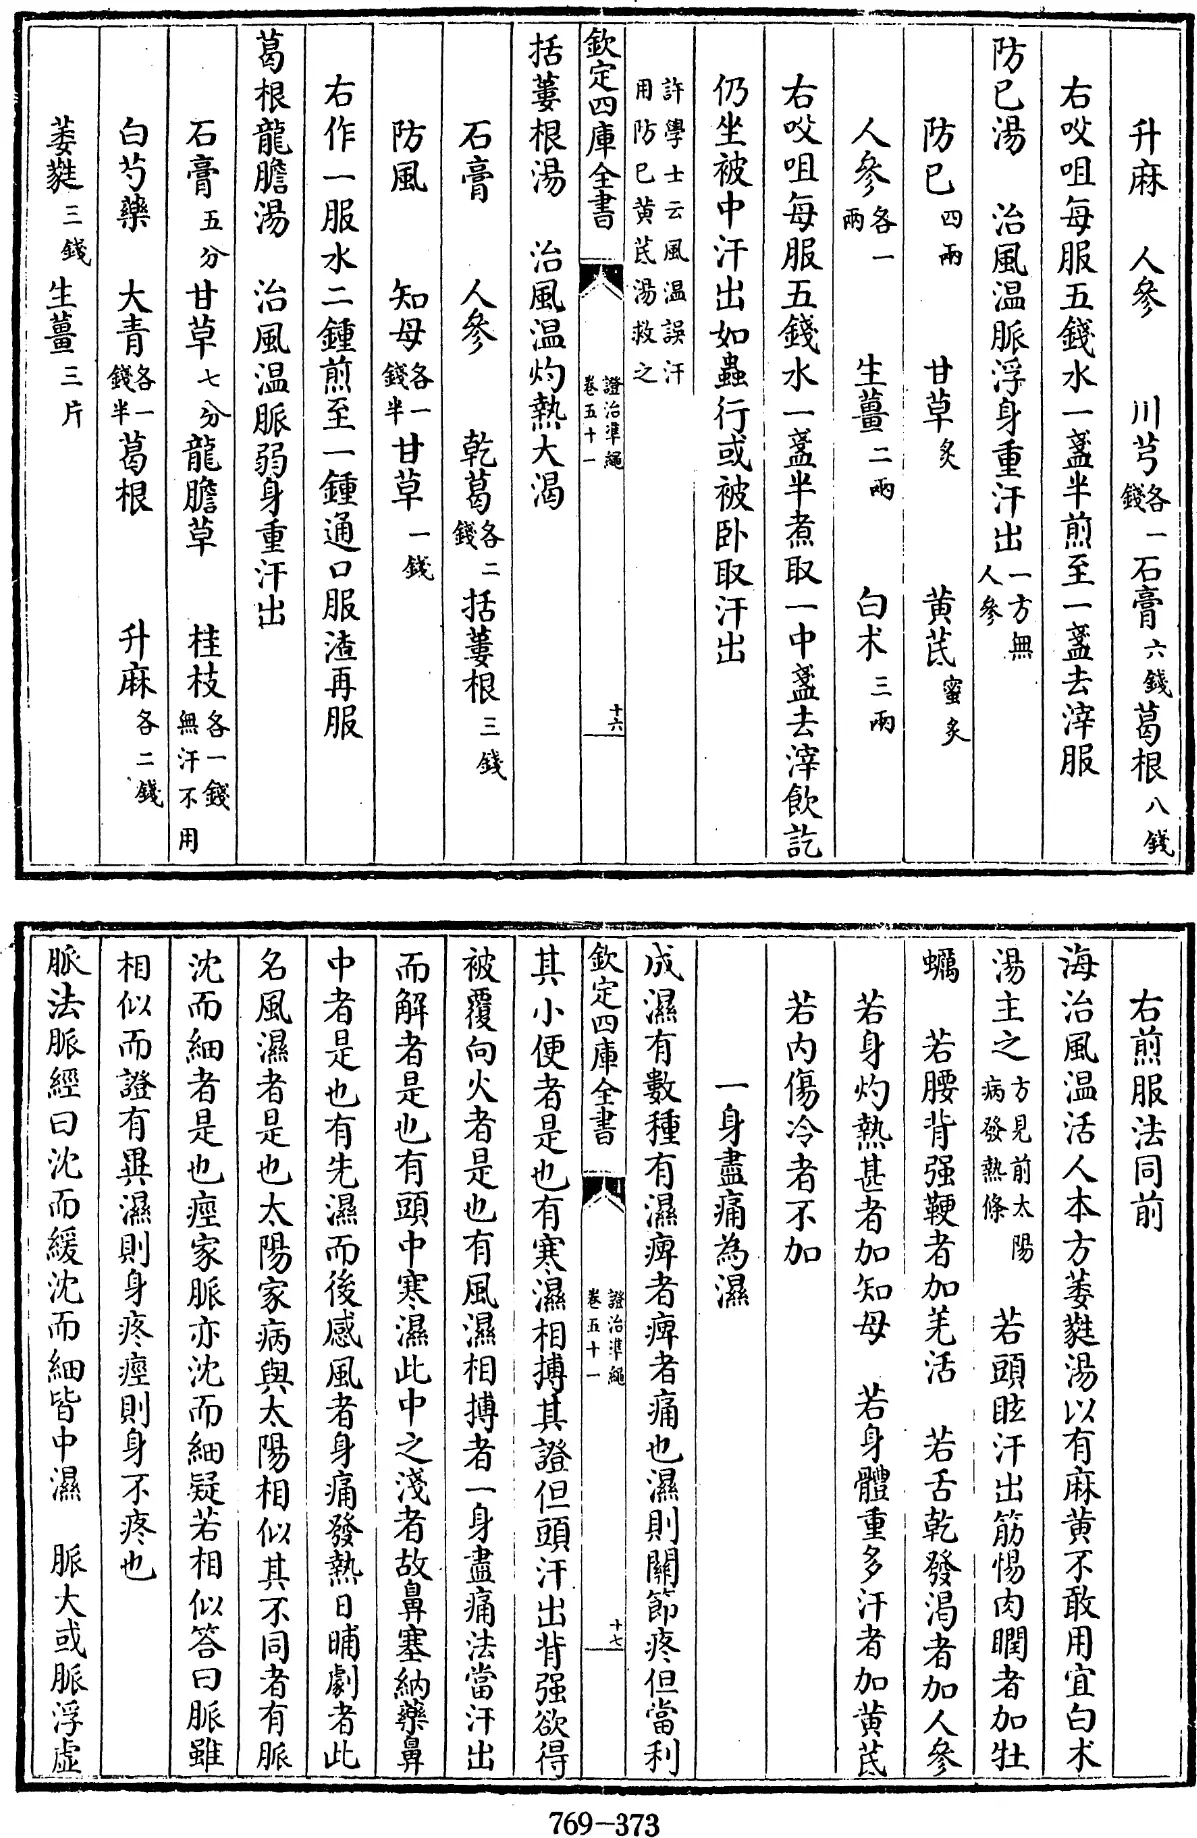 升麻　人參　川芎各一錢　石膏六錢　葛根八錢
右㕮咀每服五錢水一盞半煎至一盞去滓服
防己湯　治風温脈浮身重汗出一方無人參
防己四兩　甘草炙　黄芪蜜炙
人參各一兩　生薑二兩　白术三兩
右㕮咀每服五錢水一盞半煮取一中盞去滓飲訖
仍坐被中汗出如蟲行或被卧取汗出
許學士云風温誤汗
用防己黄芪湯救之
欽定四庫全書　證治準繩卷五十一　十六
括蔞根湯　治風温灼熱大渴
石膏　人參　乾葛各二錢　括蔞根三錢
防風　知母各一錢半　甘草一錢
右作一服水二鍾煎至一鍾通口服渣再服
葛根龍膽湯　治風温脈弱身重汗出
石膏五分　甘草七分　龍膽草　桂枝各一錢無汗不用
白芍藥　大青各一錢半　葛根　升麻各二錢
萎蕤三錢　生薑三片
右煎服法同前
海治風温活人本方萎蕤湯以有麻黄不敢用宜白术
湯主之方見前太陽病發熱條　若頭眩汗出筋惕肉瞤者加牡
蠣　若腰背强鞕者加羌活　若舌乾發渴者加人參
若身灼熱甚者加知母　若身體重多汗者加黄芪
若内傷冷者不加
一身盡痛為濕
成濕有數種有濕痺者痺者痛也濕則關節疼但當利
欽定四庫全書　證治準繩卷五十一　十七
其小便者是也有寒濕相搏其證但頭汗出背强欲得
被覆向火者是也有風濕相搏者一身盡痛法當汗出
而解者是也有頭中寒濕此中之淺者故鼻塞納藥鼻
中者是也有先濕而後感風者身痛發熱日晡劇者此
名風濕者是也太陽家病與太陽相似其不同者有脈
沈而細者是也痙家脈亦沈而細疑若相似答曰脈雖
相似而證有異濕則身疼痙則身不疼也
脈法脈經曰沈而緩沈而細皆中濕　脈大或脈浮虚
769-373